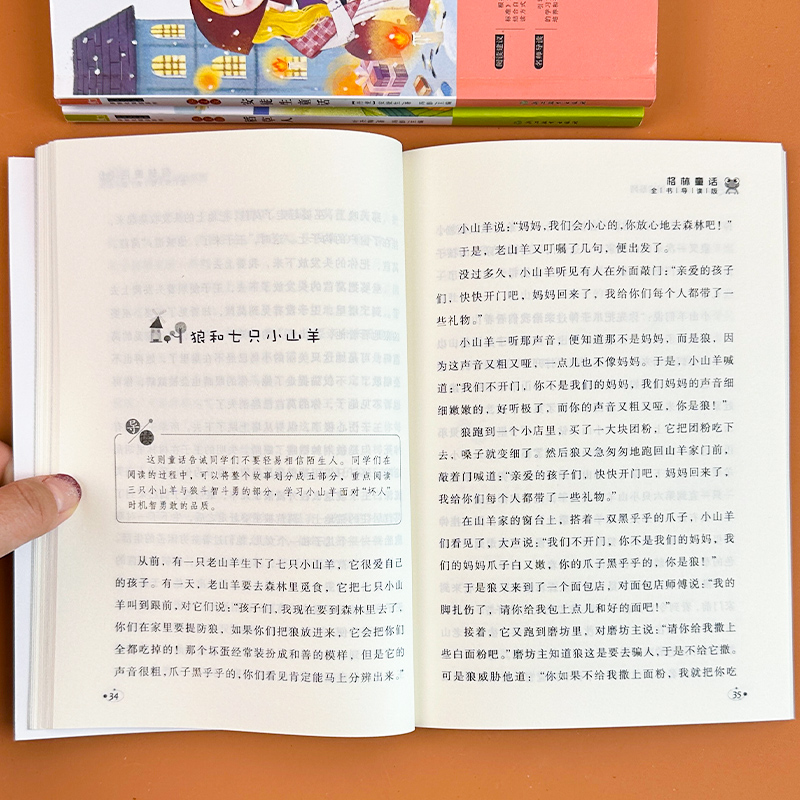 阅读建议
名师导读
安徒生童话
稻草人
狼和七只小山羊
导
这则童话告诫同学们不要轻易相信陌生人。同学们在
阅读的过程中，可以将整个故事划分成五部分，重点阅读
三只小山羊与狼斗智斗勇的部分，学习小山羊面对“坏人”
时机智勇敢的品质。
从前，有一只老山羊生下了七只小山羊，它很爱自己
的孩子。有一天，老山羊要去森林里觅食，它把七只小山
羊叫到跟前，对它们说：“孩子们，我现在要到森林里去了，
你们在家里要提防狼，如果你们把狼放进来，它会把你们
全都吃掉的！那个坏蛋经常装扮成和善的模样，但是它的
声音很粗，爪子黑乎乎的，你们看见肯定能马上分辨出来。”
34
格林童话
全书导读版
小山羊说：“妈妈，我们会小心的，你放心地去森林吧！”
于是，老山羊又叮嘱了几句，便出发了。
没过多久，小山羊听见有人在外面敲门：“亲爱的孩子
们，快快开门吧，妈妈回来了，我给你们每个人都带了一
些礼物。”
小山羊一听那声音，便知道那不是妈妈，而是狼，因
为这声音又粗又哑，一点儿也不像妈妈。于是，小山羊喊
道：“我们不开门，你不是我们的妈妈，我们妈妈的声音细
细嫩嫩的，好听极了，而你的声音又粗又哑，你是狼！”
狼跑到一个小店里，买了一大块团粉，它把团粉吃下
去，嗓子就变细了。然后狼又急匆匆地跑回山羊家门前，
敲着门喊道：“亲爱的孩子们，快快开门吧，妈妈回来了，
我给你们每个人都带了一些礼物。”
在山羊家的窗台上，搭着一双黑乎乎的爪子，小山羊
们看见了，大声说：“我们不开门，你不是我们的妈妈，我
们的妈妈爪子白又嫩，你的爪子黑乎乎的，你是狼！”
于是狼又来到了一个面包店，对面包店师傅说：“我的
脚扎伤了，请你给我包上点儿和好的面吧！”
接着，它又跑到磨坊里，对磨坊主说：“请你给我撒上
些白面粉吧。”磨坊主知道狼这是要去骗人，于是不给它撒。
可是狼威胁他道：“你如果不给我撒上面粉，我就把你吃
35